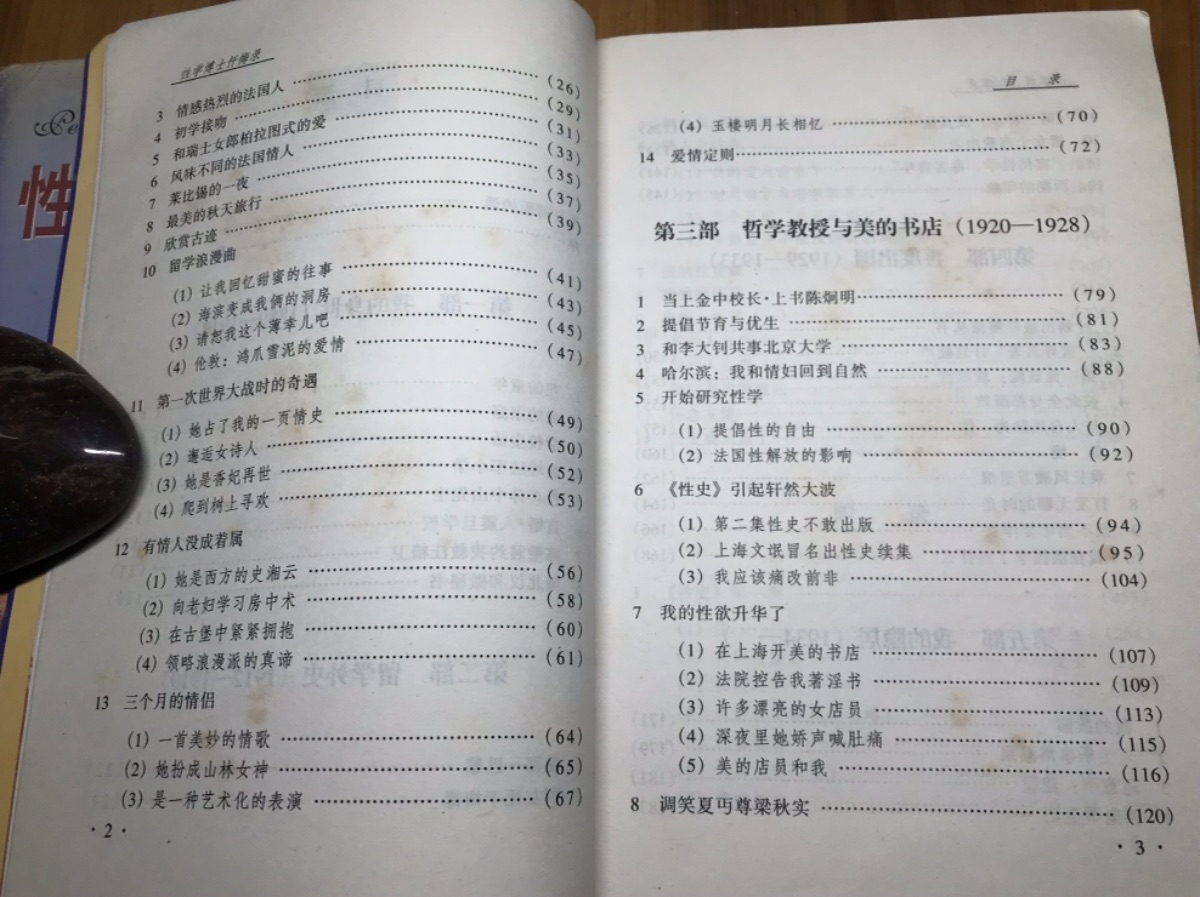 性
性学博士忏悔录
3 情感热烈的法国人 ………… (26)
4 初学接吻 ………… (29)
5 和瑞士女郎柏拉图式的爱 ………… (31)
6 风味不同的法国情人 ………… (33)
7 莱比锡的一夜 ………… (35)
8 最美的秋天旅行 ………… (37)
9 欣赏古迹 ………… (39)
10 留学浪漫曲
(1) 让我回忆甜蜜的往事 ………… (41)
(2) 海滨变成我俩的洞房 ………… (43)
(3) 请恕我这个薄幸儿吧 ………… (45)
(4) 伦敦：鸿爪雪泥的爱情 ………… (47)
11 第一次世界大战时的奇遇
(1) 她占了我的一页情史 ………… (49)
(2) 邂逅女诗人 ………… (50)
(3) 她是香妃再世 ………… (52)
(4) 爬到树上寻欢 ………… (53)
12 有情人没成着属
(1) 她是西方的史湘云 ………… (56)
(2) 向老妇学习房中术 ………… (58)
(3) 在古堡中紧紧拥抱 ………… (60)
(4) 领略浪漫派的真谛 ………… (61)
13 三个月的情侣
(1) 一首美妙的情歌 ………… (64)
(2) 她扮成山林女神 ………… (65)
(3) 是一种艺术化的表演 ………… (67)
· 2 ·
目 录
(4) 玉楼明月长相忆 ………… (70)
14 爱情定则 ………… (72)
第三部 哲学教授与美的书店（1920—1928）
1 当上金中校长·上书陈炯明 ………… (79)
2 提倡节育与优生 ………… (81)
3 和李大钊共事北京大学 ………… (83)
4 哈尔滨：我和情妇回到自然 ………… (88)
5 开始研究性学
(1) 提倡性的自由 ………… (90)
(2) 法国性解放的影响 ………… (92)
6 《性史》引起轩然大波
(1) 第二集性史不敢出版 ………… (94)
(2) 上海文氓冒名出性史续集 ………… (95)
(3) 我应该痛改前非 ………… (104)
7 我的性欲升华了
(1) 在上海开美的书店 ………… (107)
(2) 法院控告我著淫书 ………… (109)
(3) 许多漂亮的女店员 ………… (113)
(4) 深夜里她娇声喊肚痛 ………… (115)
(5) 美的店员和我 ………… (116)
8 调笑夏丏尊梁秋实 ………… (120)
· 3 ·